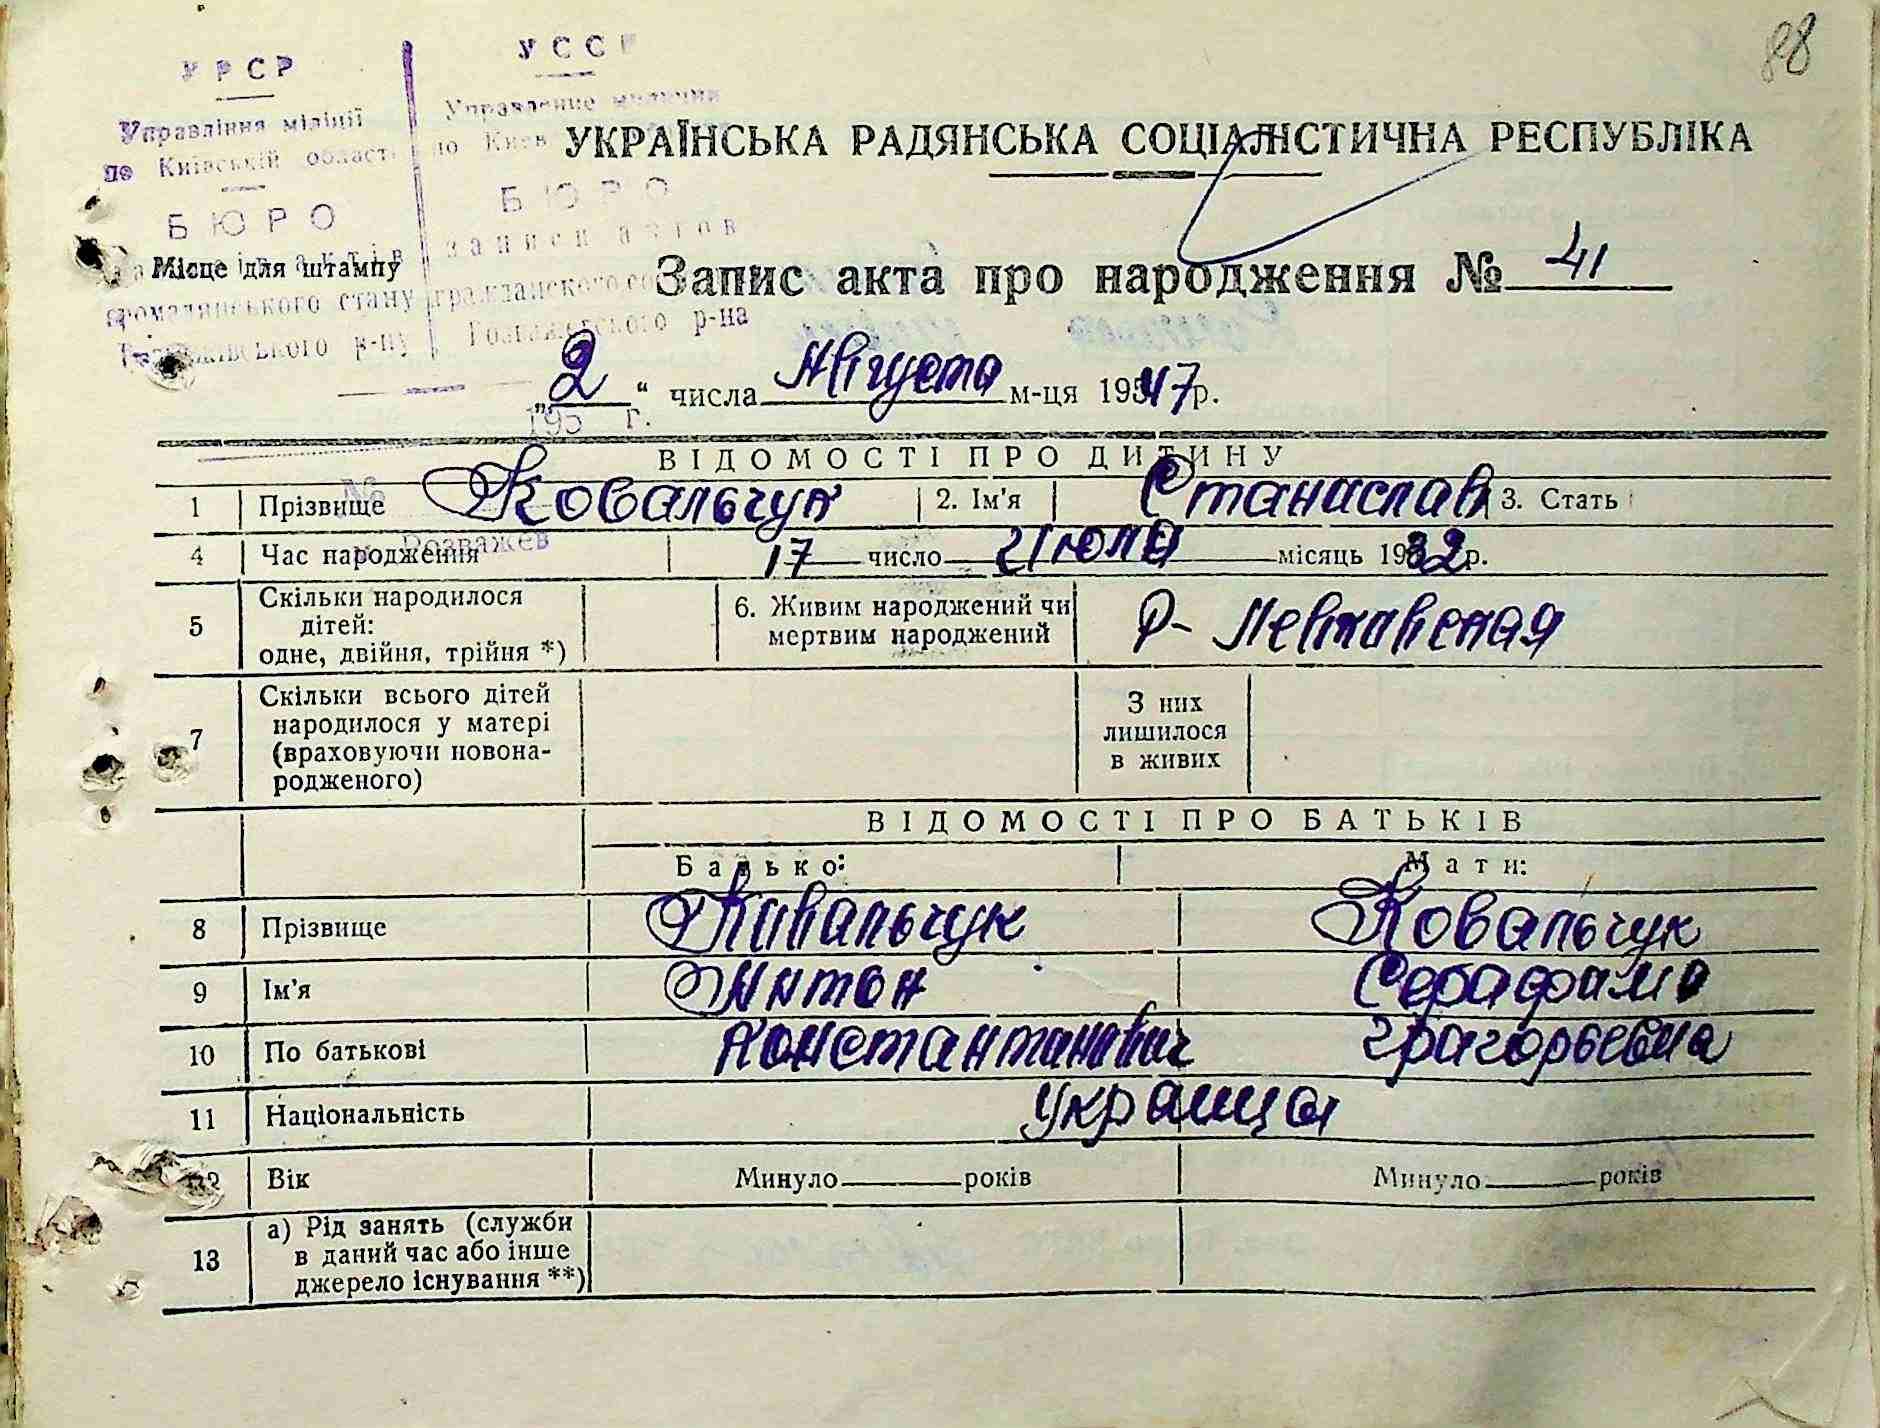 88
УРСР
УССР
Управління міліції
по Київській області
Управление милиции
по Киев
БЮРО
БЮРО
записи актов
громадянського стану
гражданского со
р-ну
Розважевского р-на
195 г.
№
Розважев
УКРАЇНСЬКА РАДЯНСЬКА СОЦІАЛІСТИЧНА РЕСПУБЛІКА
Місце для штампу
Запис акта про народження № 41
„2“ числа Августа м-ця 1947 р.
ВІДОМОСТІ ПРО ДИТИНУ
1 Прізвище Ковальчук 2. Ім'я Станислав 3. Стать
4 Час народження 17 число Июля місяць 1932 р.
5 Скільки народилося дітей: одне, двійня, трійня *) 6. Живим народжений чи мертвим народжений Р-
7 Скільки всього дітей народилося у матері (враховуючи новона-родженого) З них лишилося в живих
ВІДОМОСТІ ПРО БАТЬКІВ
Батько: Мати:
8 Прізвище Ковальчук Ковальчук
9 Ім'я Антон Серафима
10 По батькові Константинович Григорьевна
11 Національність Украинцы
12 Вік Минуло років Минуло років
13 а) Рід занять (служби в даний час або інше джерело існування **)